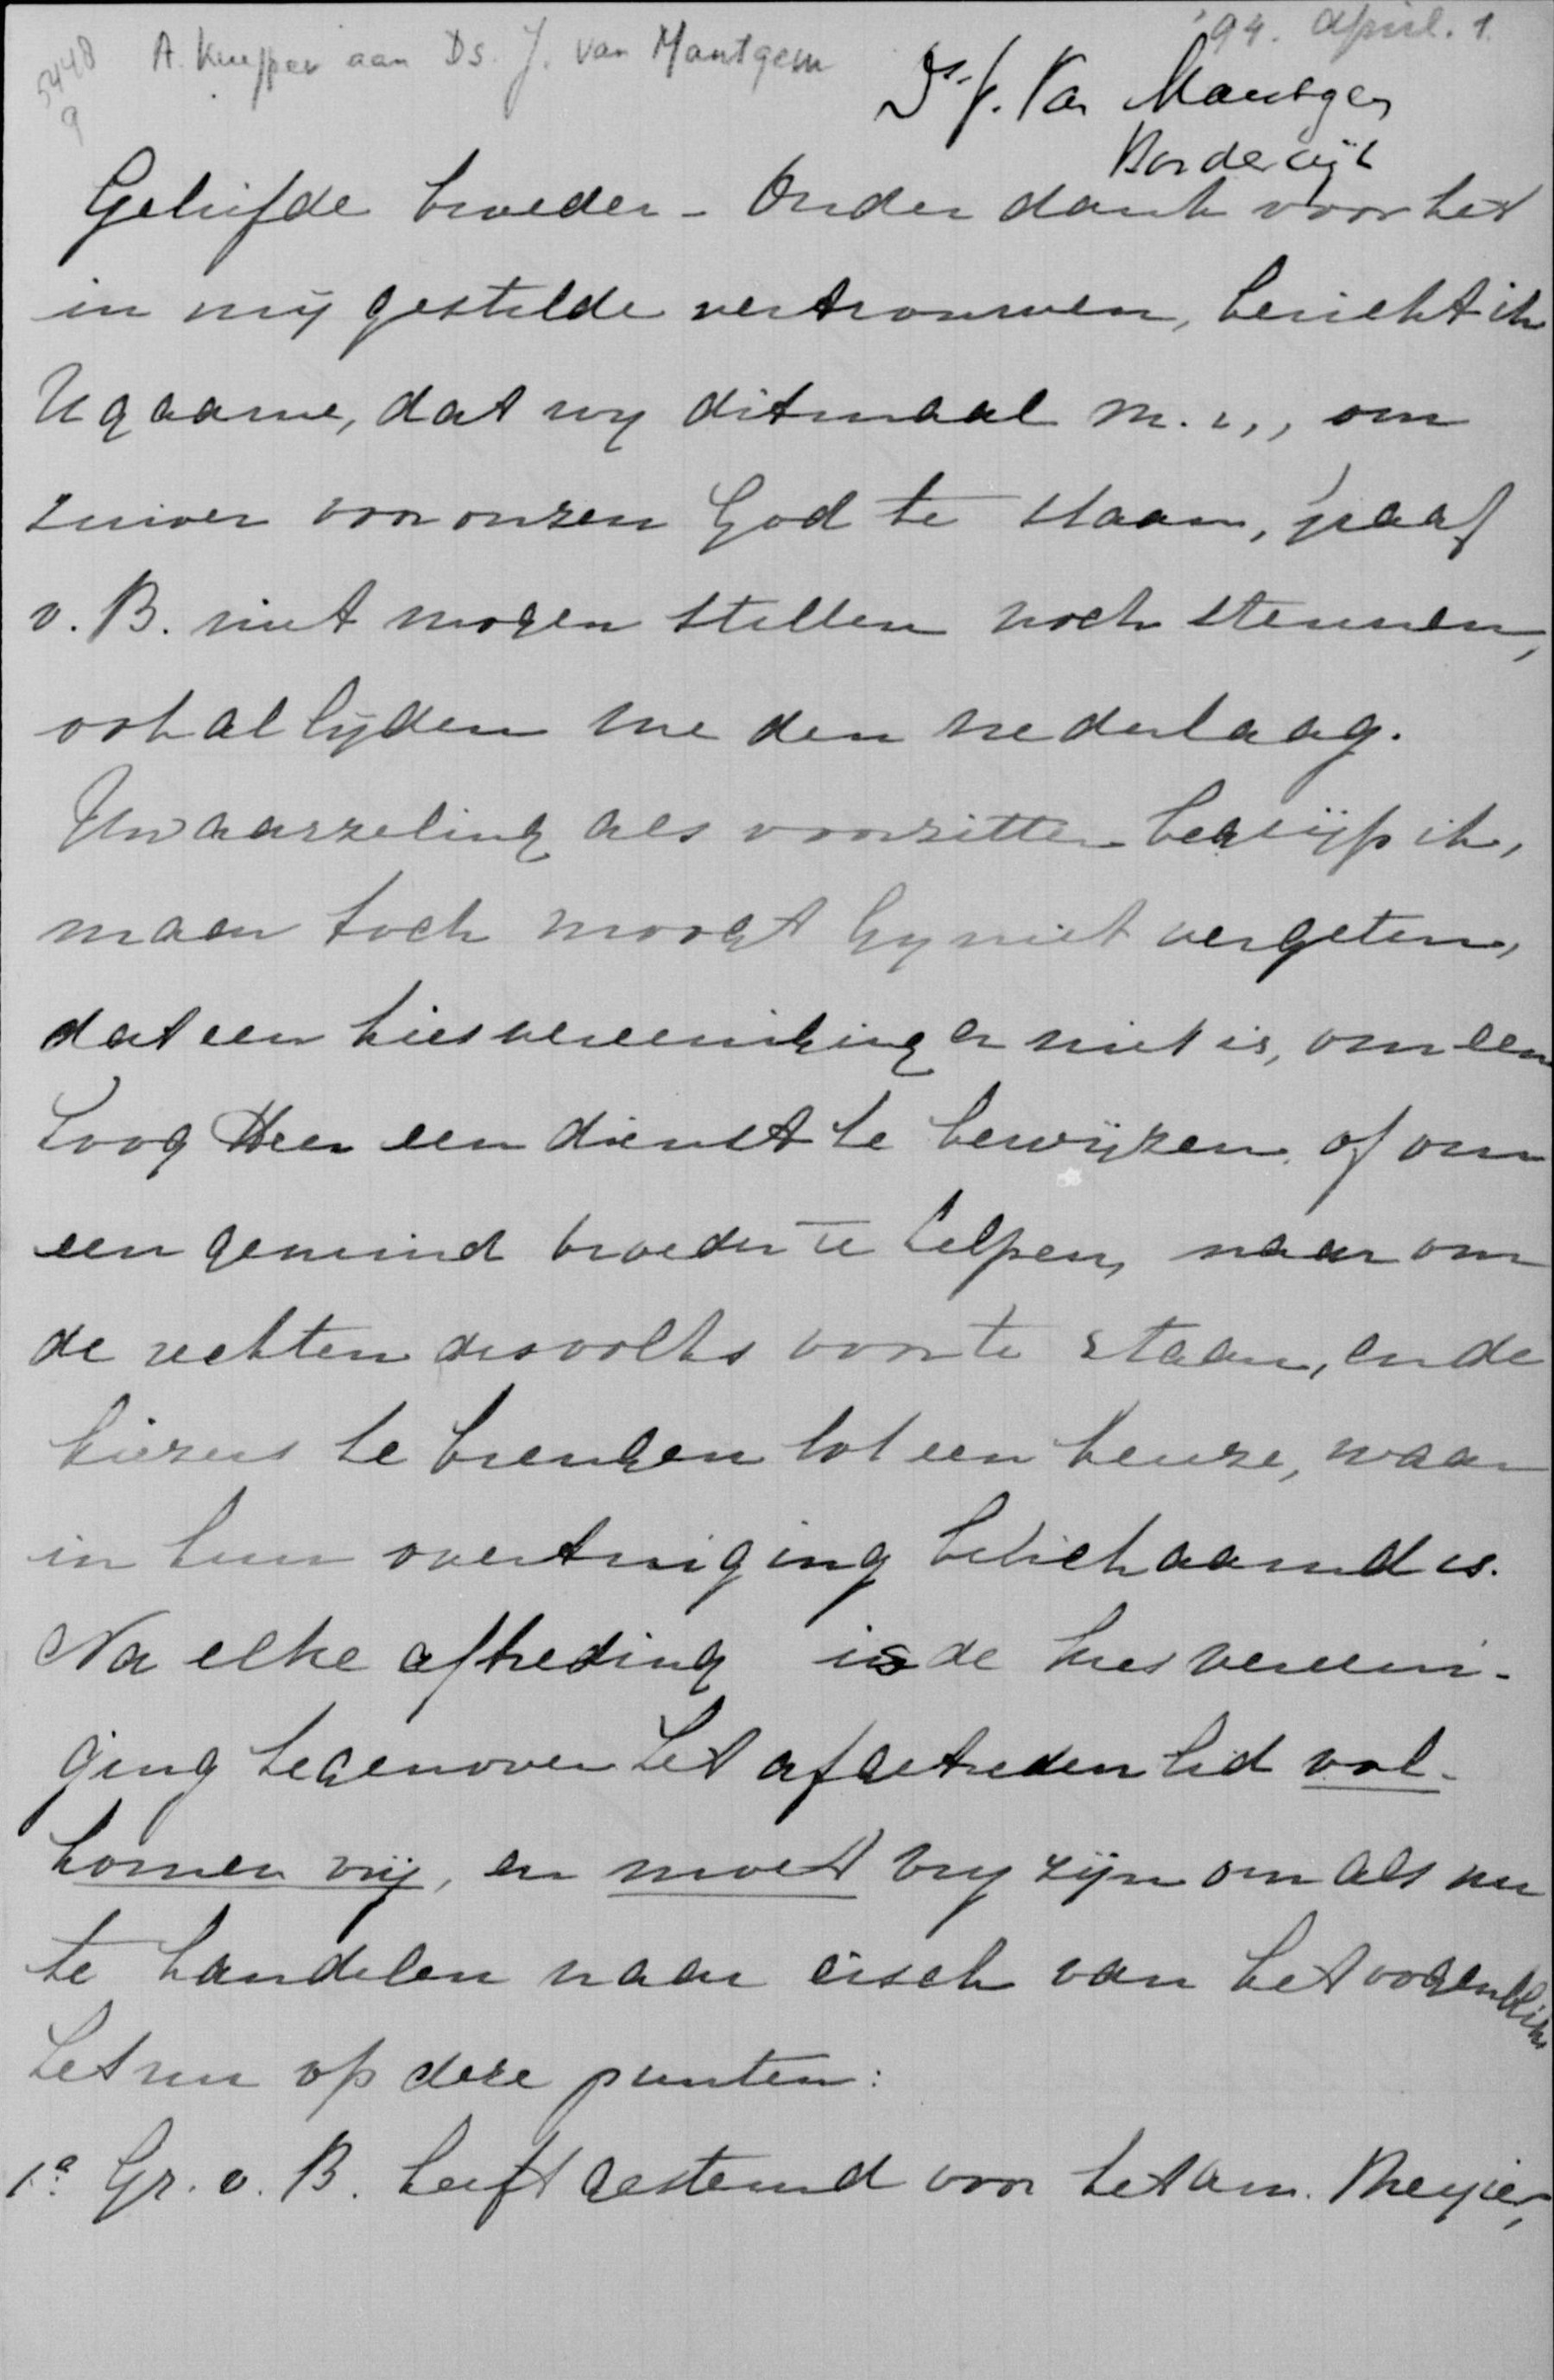 '94. April. 1.
5448
9
A. Kuyper aan Ds. J. van Mantgem
Ds. J. Van Mantgem
Harderwijk
Geliefde broeder - Onder dank voor het
in mij gestelde vertrouwen, bericht ik
U gaarne, dat wij ditmaal m. i., om
zuiver voor onzen God te staan, graaf
v. B. niet mogen stellen noch steunen,
ook al lijden we den nederlaag.
Uw aarzeling als voorzitter begrijp ik,
maar toch moogt Gy niet vergeten,
dat een kiesvereeniging er niet is, om een
hoog Heer een dienst te bewijzen, of om
een gemeind broeder te helpen, maar om
de rechten des volks voor te staan, en de
kiezers te brengen tot een keuze, waar
in hun overtuiging belichaamd is.
Na elke aftreding is de kiesvereeni-
ging tegenover het afgetreden lid vol-
komen vrij, en moet vry zijn om als nu
te handelen naar eisch van het oogenblik
Let nu op deze punten:
1º. Gr. v. B. heeft gestemd voor het am. Meyier,